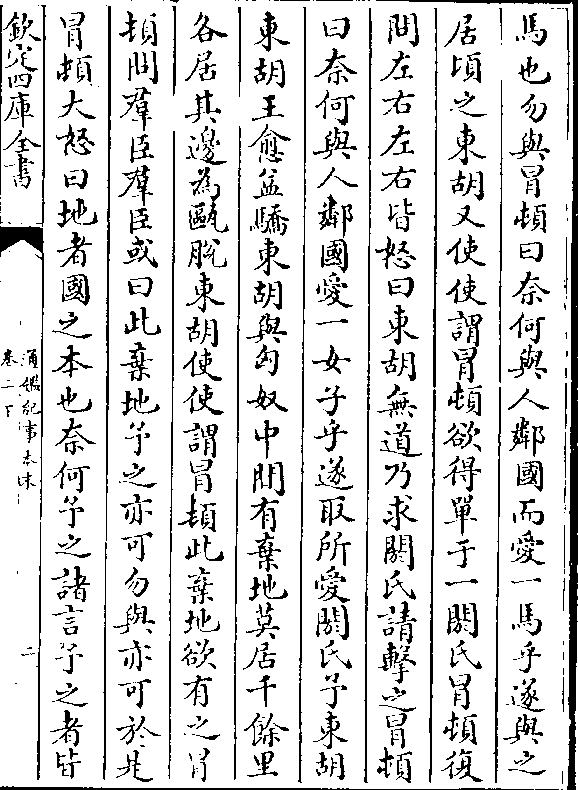 馬也勿與冒頓曰奈何與人鄰國而愛一馬乎遂與之
居頃之東胡又使使謂冒頓欲得單于一閼氏冒頓復
問左右左右皆怒曰東胡無道乃求閼氏請擊之冒頓
曰奈何與人鄰國愛一女子乎遂取所愛閼氏予東胡
東胡王愈益驕東胡與匈奴中間有棄地莫居千餘里
各居其邊為甌脫東胡使使謂冒頓此棄地欲有之冒
頓問羣臣羣臣或曰此棄地予之亦可勿與亦可於是
冒頓大怒曰地者國之本也奈何予之諸言予之者皆
欽定四庫全書
通鑑紀事本末
卷二下
二